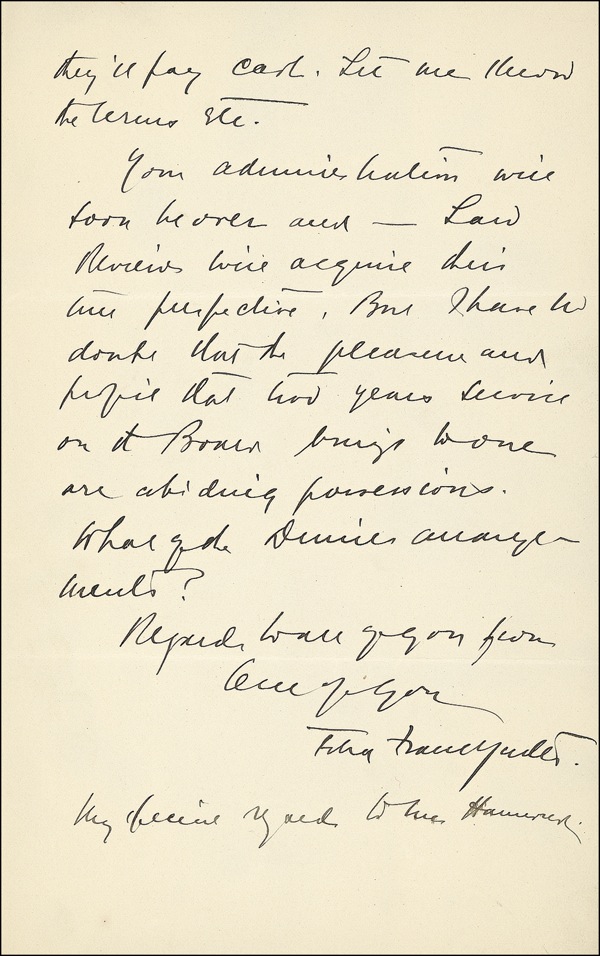 they'll pay cash. Let me know
the terms etc.
Your administration will
soon be over and — Law
Reviews will acquire their
true perspective. But I have no
doubt that the pleasure and
profit that two years service
on the Board brings to one
are abiding possessions.
What of the Dinner arrange-
ments?
Regards to all of you from
One of you
Felix Frankfurter.
My special regards to Mrs